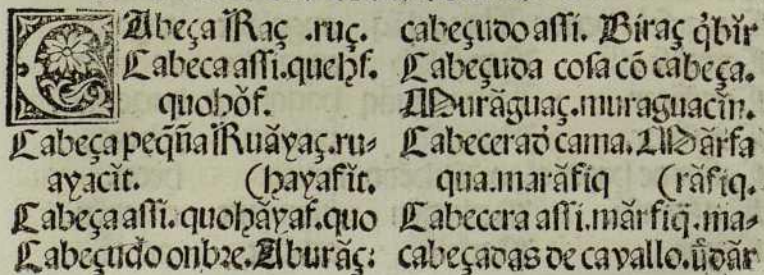 CAbeça Raç .ruç.
Cabeca assi.quehf.
quohŏf.
Cabeça peq̃ña Ruăyaç.ru⸗
ayacĭt. (hayafĭt.
Cabeça assi.quohăyaf.quo
Cabeçudo onbre. Aburăç:
cabeçudo assi. Biraç q̃bĭr
Cabeçuda cosa cõ cabeça.
Murăguaç.muraguacĭn.
Cabecera đ cama. Mărfa
qua.marăfiq (răfiq.
Cabecera assi.mărfiq̃.ma⸗
cabeçadas de cavallo.üdăr